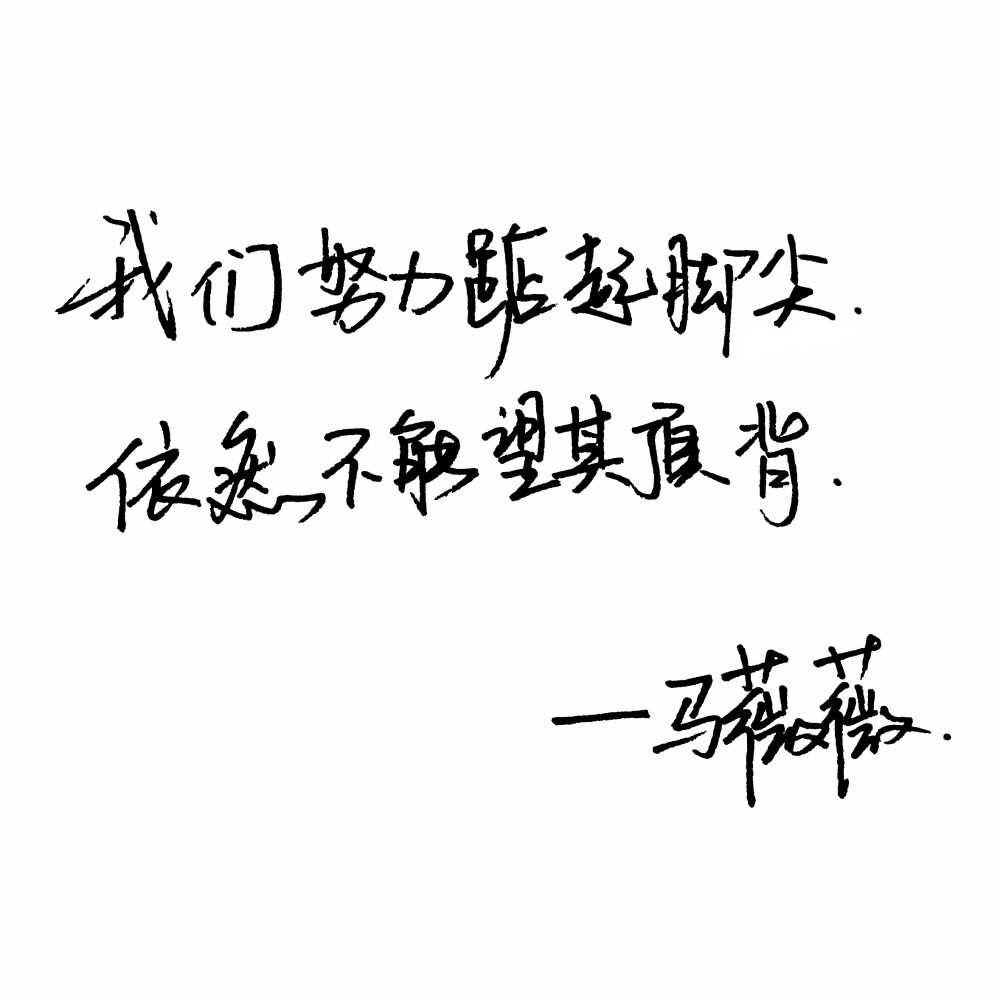 我们努力踮起脚尖.
依然不能望其项背.
—马薇薇.